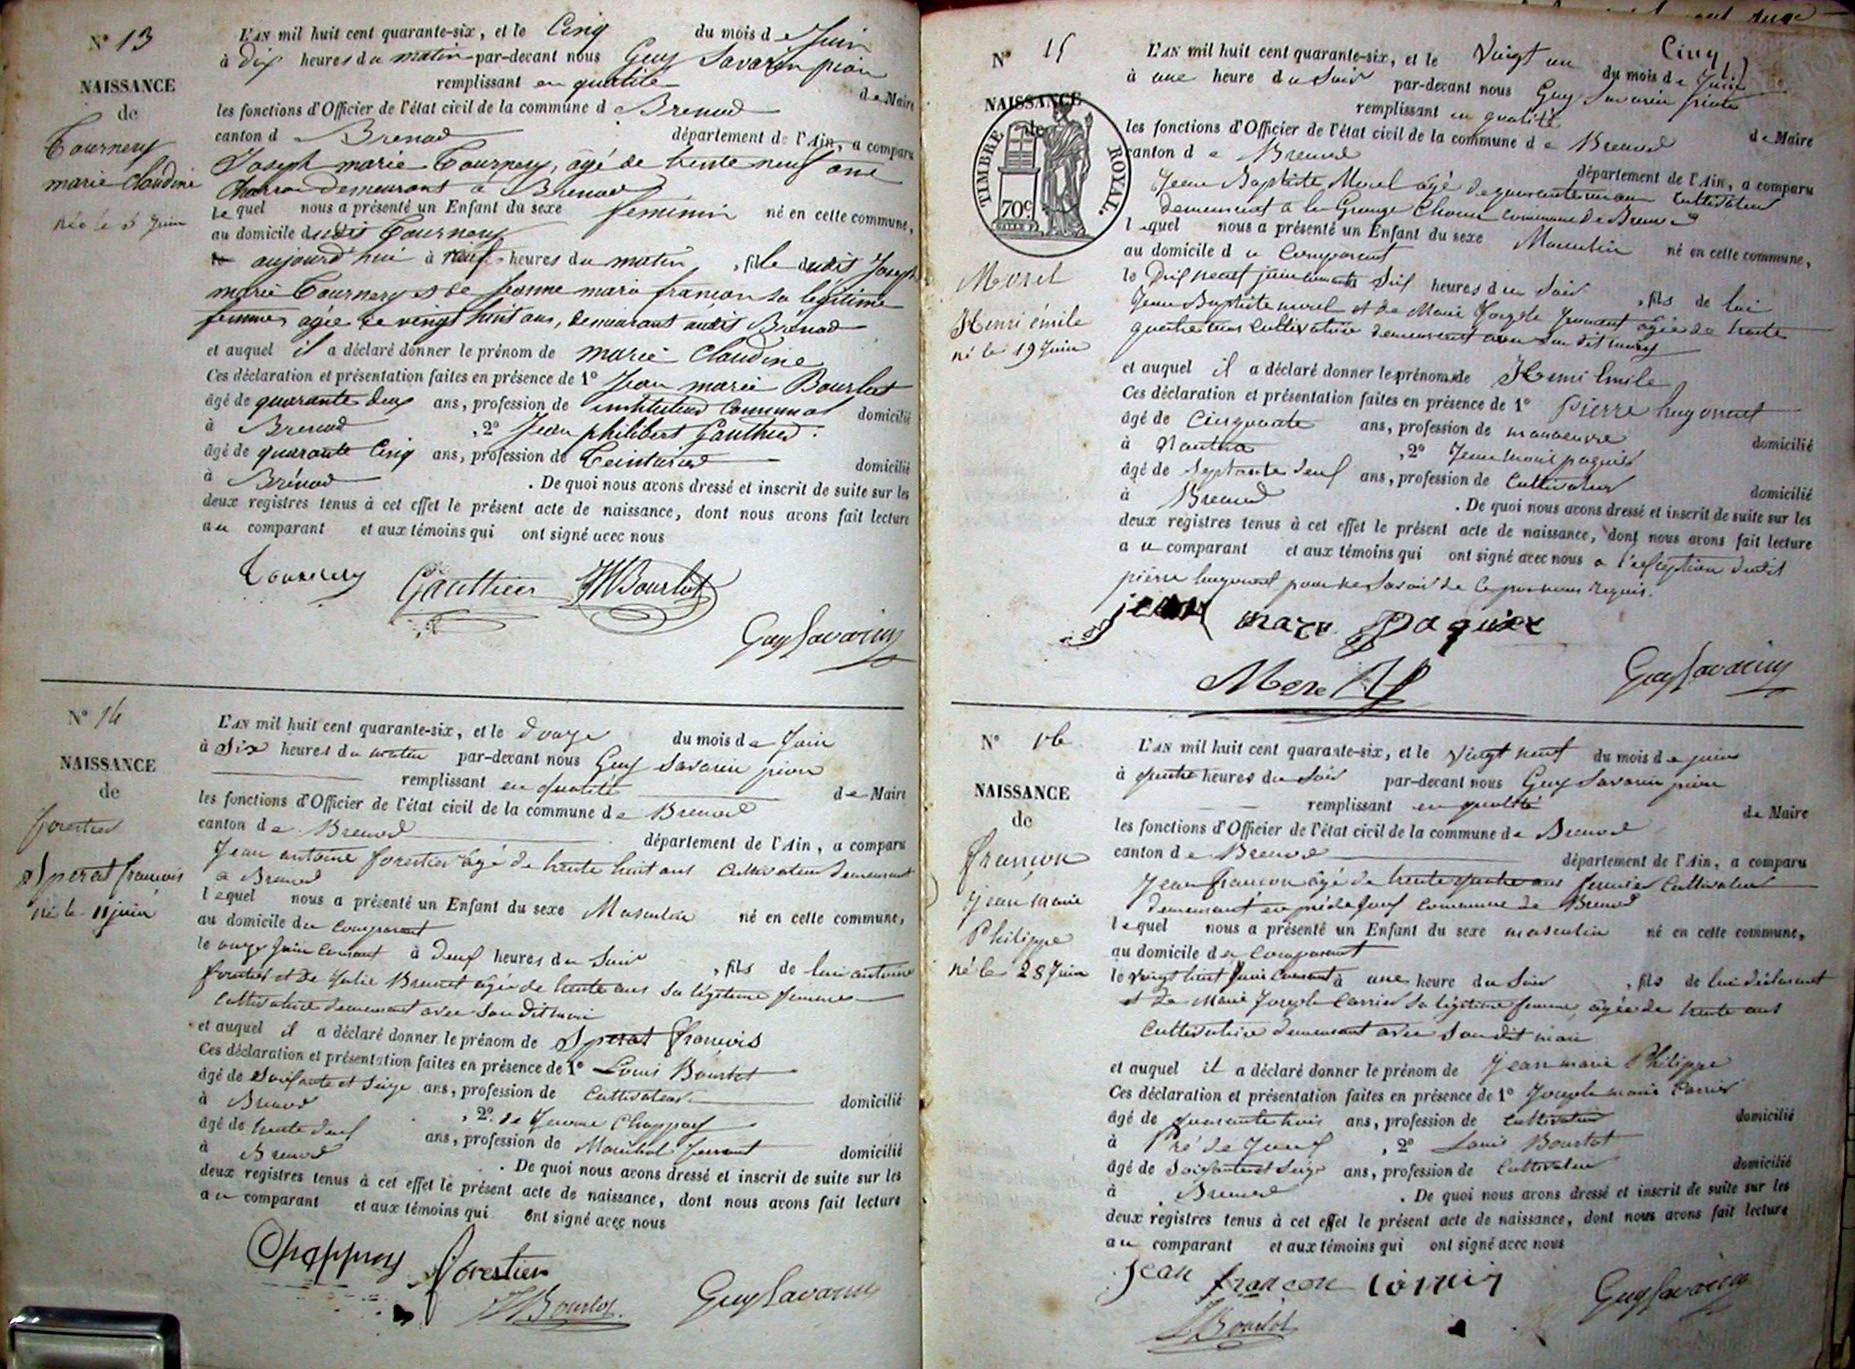 N° 13
NAISSANCE
de
Tournery
marie Claudine
née le 5 Juin
L'AN mil huit cent quarante-six, et le Cinq du mois de Juin
à dix heures du matin par-devant nous Guy Savarin pierre
remplissant en qualité de Maire
les fonctions d'Officier de l'état civil de la commune d Brenod
canton d Brenod département de l'Ain, a comparu
Joseph marie Tournery, âgé de trente neuf ans
Charron demeurant à Brenod
lequel nous a présenté un Enfant du sexe féminin né en cette commune,
au domicile dudit Tournery
aujourd'hui à neuf heures du matin, fille dudit Joseph
marie Tournery et de jeanne marie françon sa légitime
femme, agée de vingt huit ans, demeurant audit Brénod
et auquel il a déclaré donner le prénom de marie Claudine
Ces déclaration et présentation faites en présence de 1° Jean marie Bourlot
âgé de quarante deux ans, profession de instituteur Communal domicilié
à Brenod, 2° Jean philibert Gauthier
âgé de quarante Cinq ans, profession de Teinturier domicilié
à Brénod. De quoi nous avons dressé et inscrit de suite sur les
deux registres tenus à cet effet le présent acte de naissance, dont nous avons fait lecture
au comparant et aux témoins qui ont signé avec nous
Tournery Gauthier JMBourlot
Guy Savarin
N° 14
NAISSANCE
de
forestier
Sperat françois
né le 11 juin
L'AN mil huit cent quarante-six, et le douze du mois de Juin
à six heures du matin par-devant nous Guy Savarin pierre
remplissant en qualité de Maire
les fonctions d'Officier de l'état civil de la commune de Brenod
canton de Brenod département de l'Ain, a comparu
Jean antoine forestier âgé de trente huit ans Cultivateur demeurant
à Brenod
lequel nous a présenté un Enfant du sexe Masculin né en cette commune,
au domicile du comparant
le onze Juin courant à deux heures du Soir, fils de lui antoine
forestier et de Julie Brunet âgée de trente ans sa légitime femme
Cultivatrice demeurant avec son dit mari
et auquel il a déclaré donner le prénom de Sperat françois
Ces déclaration et présentation faites en présence de 1° Louis Bourlot
âgé de Soixante et Seize ans, profession de Cultivateur domicilié
à Brenod, 2° de Jerome Chappuy
âgé de trente deux ans, profession de Maréchal ferrant domicilié
à Brenod. De quoi nous avons dressé et inscrit de suite sur les
deux registres tenus à cet effet le présent acte de naissance, dont nous avons fait lecture
au comparant et aux témoins qui ont signé avec nous
Chappuy forestier
Bourlot Guy Savarin
N° 15
NAISSANCE
de
TIMBRE ROYAL.
70c
Morel
Henri émile
né le 19 Juin
Cinq
L'AN mil huit cent quarante-six, et le Vingt un du mois de Juin
à une heure du Soir par-devant nous Guy Savarin pierre
remplissant en qualité de Maire
les fonctions d'Officier de l'état civil de la commune de Brenod
canton de Brenod département de l'Ain, a comparu
Jean Baptiste Morel âgé de quarante un ans Cultivateur
demeurant à la Grange commune de Brenod
lequel nous a présenté un Enfant du sexe Masculin né en cette commune,
au domicile du Comparant
le Dix neuf juin courant à Six heures du Soir, fils de lui
Jean Baptiste morel et de Marie Josephte âgée de trente
quatre ans Cultivatrice demeurant avec son dit mary
et auquel il a déclaré donner le prénom de Henri Emile
Ces déclaration et présentation faites en présence de 1° pierre hugonnet
âgé de Cinquante ans, profession de manoeuvre domicilié
à Nantua, 2° Jean Marie paquier
âgé de Septante deux ans, profession de Cultivateur domicilié
à Brenod. De quoi nous avons dressé et inscrit de suite sur les
deux registres tenus à cet effet le présent acte de naissance, dont nous avons fait lecture
au comparant et aux témoins qui ont signé avec nous à l'exception dudit
pierre hugonnet pour ne savoir de ce par nous requis.
jean mary paquier
Morel Guy Savarin
N° 16
NAISSANCE
de
françon
Jean Marie
Philippe
né le 28 Juin
L'AN mil huit cent quarante-six, et le vingt neuf du mois de juin
à quatre heures du Soir par-devant nous Guy Savarin pierre
remplissant en qualité de Maire
les fonctions d'Officier de l'état civil de la commune de Brenod
canton de Brenod département de l'Ain, a comparu
Jean françon âgé de trente quatre ans fermier Cultivateur
demeurant en pré de Joux commune de Brenod
lequel nous a présenté un Enfant du sexe masculin né en cette commune,
au domicile du comparant
le vingt huit Juin Courant à une heure du Soir, fils de lui déclarant
et de Marie Josephte Carrier sa légitime femme, âgée de trente ans
Cultivatrice demeurant avec son dit mari
et auquel il a déclaré donner le prénom de Jean marie Philippe
Ces déclaration et présentation faites en présence de 1° Joseph marie Carrier
âgé de quarante trois ans, profession de Cultivateur domicilié
à Pré de Joux, 2° Louis Bourlot
âgé de Soixante et Seize ans, profession de Cultivateur domicilié
à Brenod. De quoi nous avons dressé et inscrit de suite sur les
deux registres tenus à cet effet le présent acte de naissance, dont nous avons fait lecture
au comparant et aux témoins qui ont signé avec nous
Jean françon Carrier
Bourlot Guy Savarin